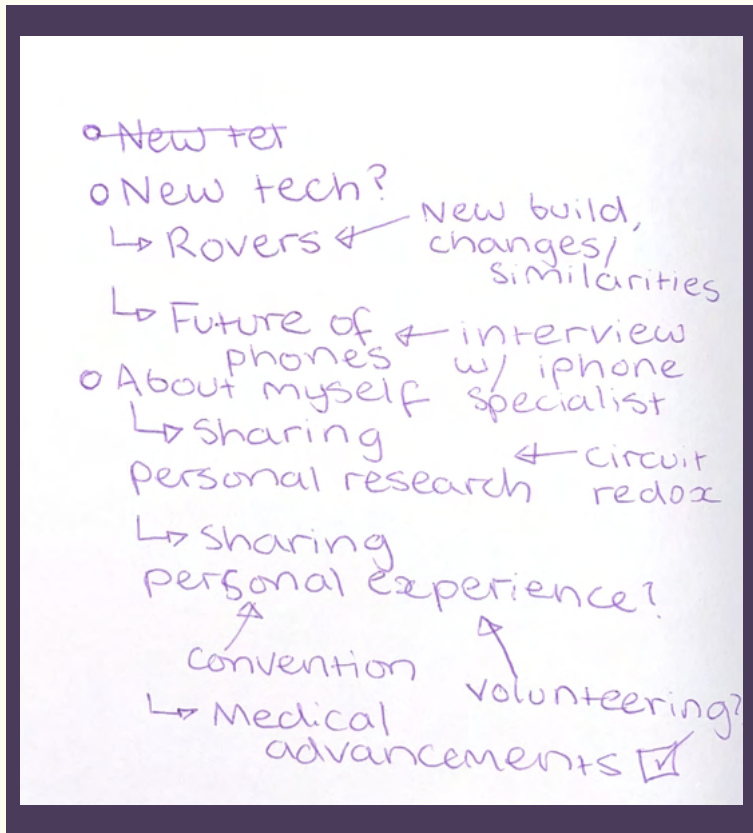 New tet
New tech?
Rovers
New build,
changes/
similarities
Future of
phones
interview
w/ iphone
specialist
About myself
Sharing
personal research
circuit
redox
Sharing
personal experience?
convention
volunteering?
Medical
advancements